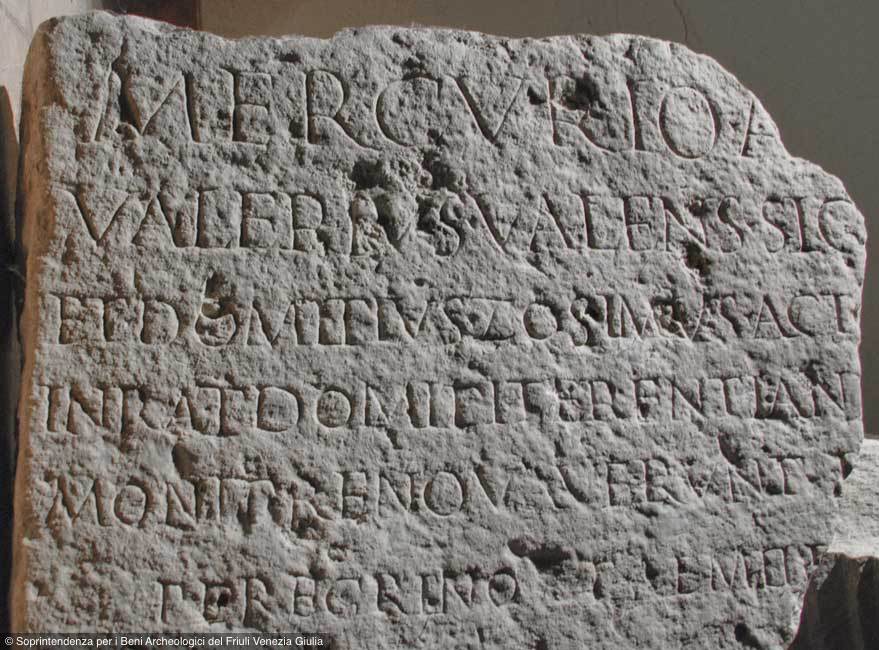 MERCVRIO A
VALERIVS VALENS SIG
ET DOMITIVS ZOSIMVS ACT
IN RAT DOMITI TERENTIAN
MONITI RENOVAVERVNT
PEREGRINO ET AEMILI
© Soprintendenza per i Beni Archeologici del Friuli Venezia Giulia